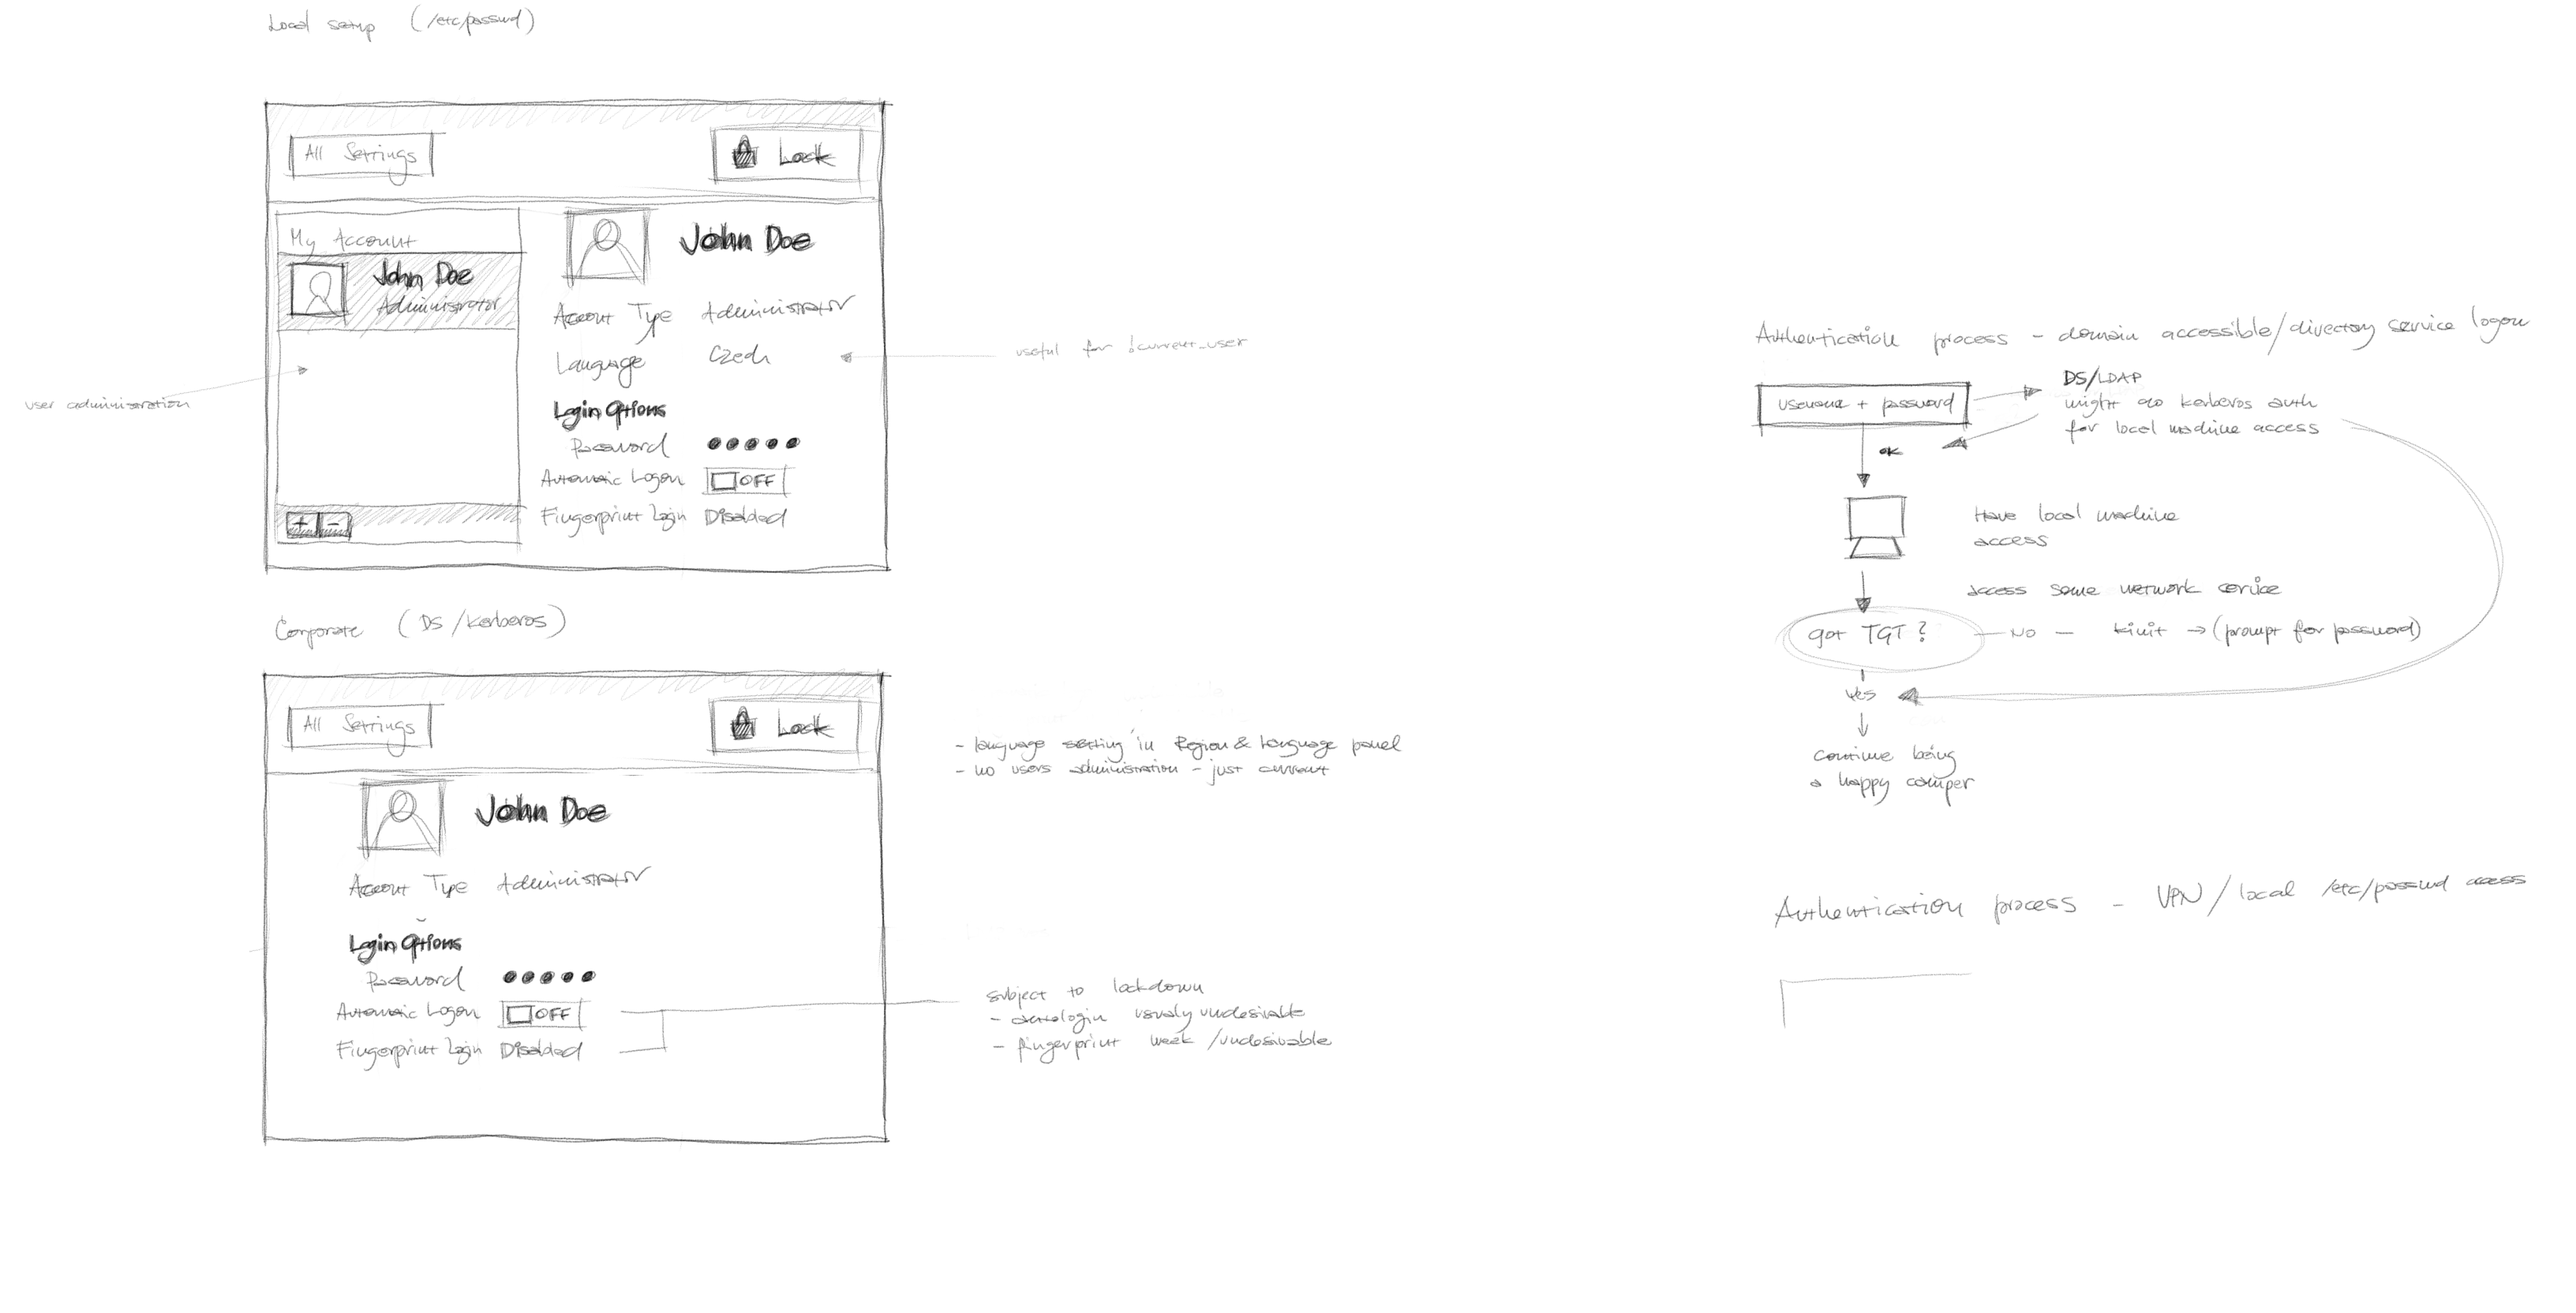 Local setup (/etc/passwd)
All Settings
Lock
My Account
John Doe
Administrator
John Doe
Account Type Administrator
Language Czech
Login Options
Password
Automatic Logon OFF
Fingerprint Login Disabled
+ -
user administration
useful for !current_user
Corporate (DS/Kerberos)
All Settings
Lock
John Doe
Account Type Administrator
Login Options
Password
Automatic Logon OFF
Fingerprint Login Disabled
- language setting in Region & Language panel
- no users administration - just current
subject to lockdown
- autologin usualy undesirable
- fingerprint weak /undesirable
Authentication process - domain accessible/directory service logon
username + password
DS/LDAP
might do kerberos auth
for local machine access
OK
Have local machine
access
access some network service
got TGT?
NO - kinit → (prompt for password)
yes
continue being
a happy camper
Authentication process - VPN/local /etc/passwd access